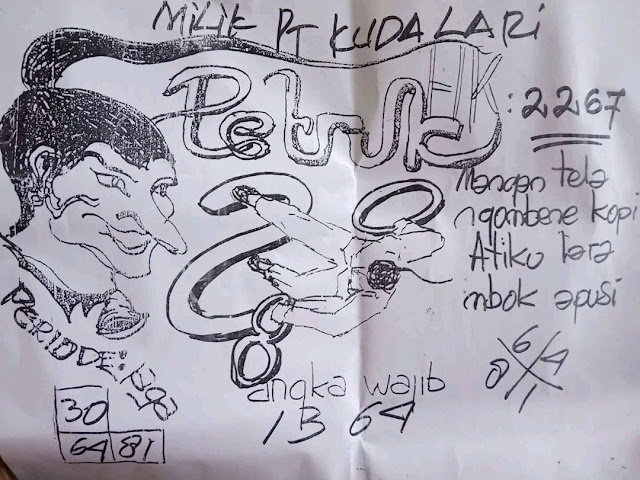 MILIK PT KUDA LARI
Petruk
HK : 2267
Mangan tela
ngombene kopi
Atiku lara
mbok apusi
PERIODE:
6
0 4
1
30
64 81
angka wajib
13 64